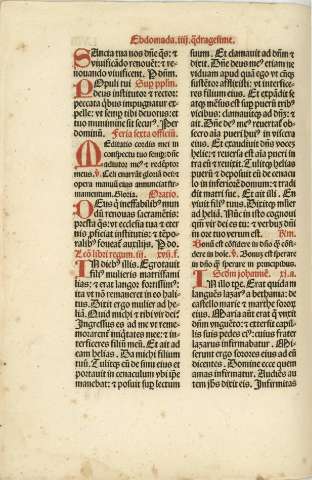 Ebdomada.iiij.q̃dragesime.
Sancta tua nos dñe q̃s: ⁊
viuificãdo renouẽt: ⁊ re-
nouando viuificent. P dñm.
Populi tui Sup pplm.
deus institutor ⁊ rector:
peccata q̃bus impugnatur expel-
le: vt semp tibi deuotus: et
tuo munimine sit secur⁹. Per
dominũ. Feria sexta officiũ.
Meditatio cordis mei in
conspectu tuo semp: dñe
adiutor me⁹ ⁊ redẽptor
meus. v̄. Celi enarrãt gloriã dei: ⁊
opera manuũ eius annunciat fir-
mamentum. Gloria. Oratio.
Deus q̃ ineffabilib⁹ mun
dũ renouas sacramẽtis:
presta q̃s: vt ecclesia tua ⁊ eter
nis p̃ficiat institutis: ⁊ tẽpo-
ralib⁹ foueat auxilijs. P do.
Lcõ libri regum.iij. xvij.f.
In dieb⁹ illis. Egrotauit
fili⁹ mulieris matrisfami
lias: ⁊ erat langor fortissim⁹:
ita vt nõ remaneret in eo hali-
tus. Dixit ergo mulier ad he-
liã. Quid michi ⁊ tibi vir dei:
Ingressus es ad me vt reme-
morarent̃ iniq̃tates mee: ⁊ in-
terficeres filiũ meũ. Et ait ad
eam helias. Da michi filium
tuũ. Tulitq̃ eũ de sinu eius et
portauit in cenaculum vbi ip̃e
manebat: ⁊ posuit sup lectum
suum. Et clamauit ad dñm ⁊
dixit. Dñe deus me⁹ etiam ne
viduam apud quã ego vt cũq̃
sustẽtor afflixisti: vt interfice-
res filium eius. Et expãdit se
atq̃ mẽsus est sup puerũ tribꝰ
vicibus: clamauitq̃ ad dñm: ⁊
ait. Dñe de⁹ me⁹ reuertat̃ obse-
cro aĩa pueri hui⁹ in viscera
eius. Et exaudiuit dñs vocẽ
helie: ⁊ reuersa est aĩa pueri in
tra eũ ⁊ reuixit. Tulitq̃ helias
puerũ ⁊ deposuit eũ de cenacu-
lo in inferiorẽ domum: ⁊ tradi
dit matri sue. Et ait illi. En vi-
uit filius tuus. Dixitq̃ mlier
ad heliã. Nũc in isto cognoui
qm̃ vir dei es tu: ⁊ verbuʒ dñi
in ore tuo verum est. R̃m.
Bonũ est cõfidere in dño q̃ cõfi-
dere in hoĩe. v̄. Bonũ est sperare
in dño q̃ sperare in principibus.
Scðm johannẽ. xj.a.
In illo tp̃e. Erat quidã lã
languẽs lazar⁹ a bethania: de
castello marie ⁊ marthe soror
eius. Maria aũt erat q̃ vnxit
dñm vnguẽto: ⁊ extersit capil-
lis suis pedes ei⁹: cuius frater
lazarus infirmabatur. Mise-
runt ergo sorores eius ad eũ di
centes. Domine ecce quem
amas infirmatur. Audiẽs au
tem jhs dixit eis. Infirmitas